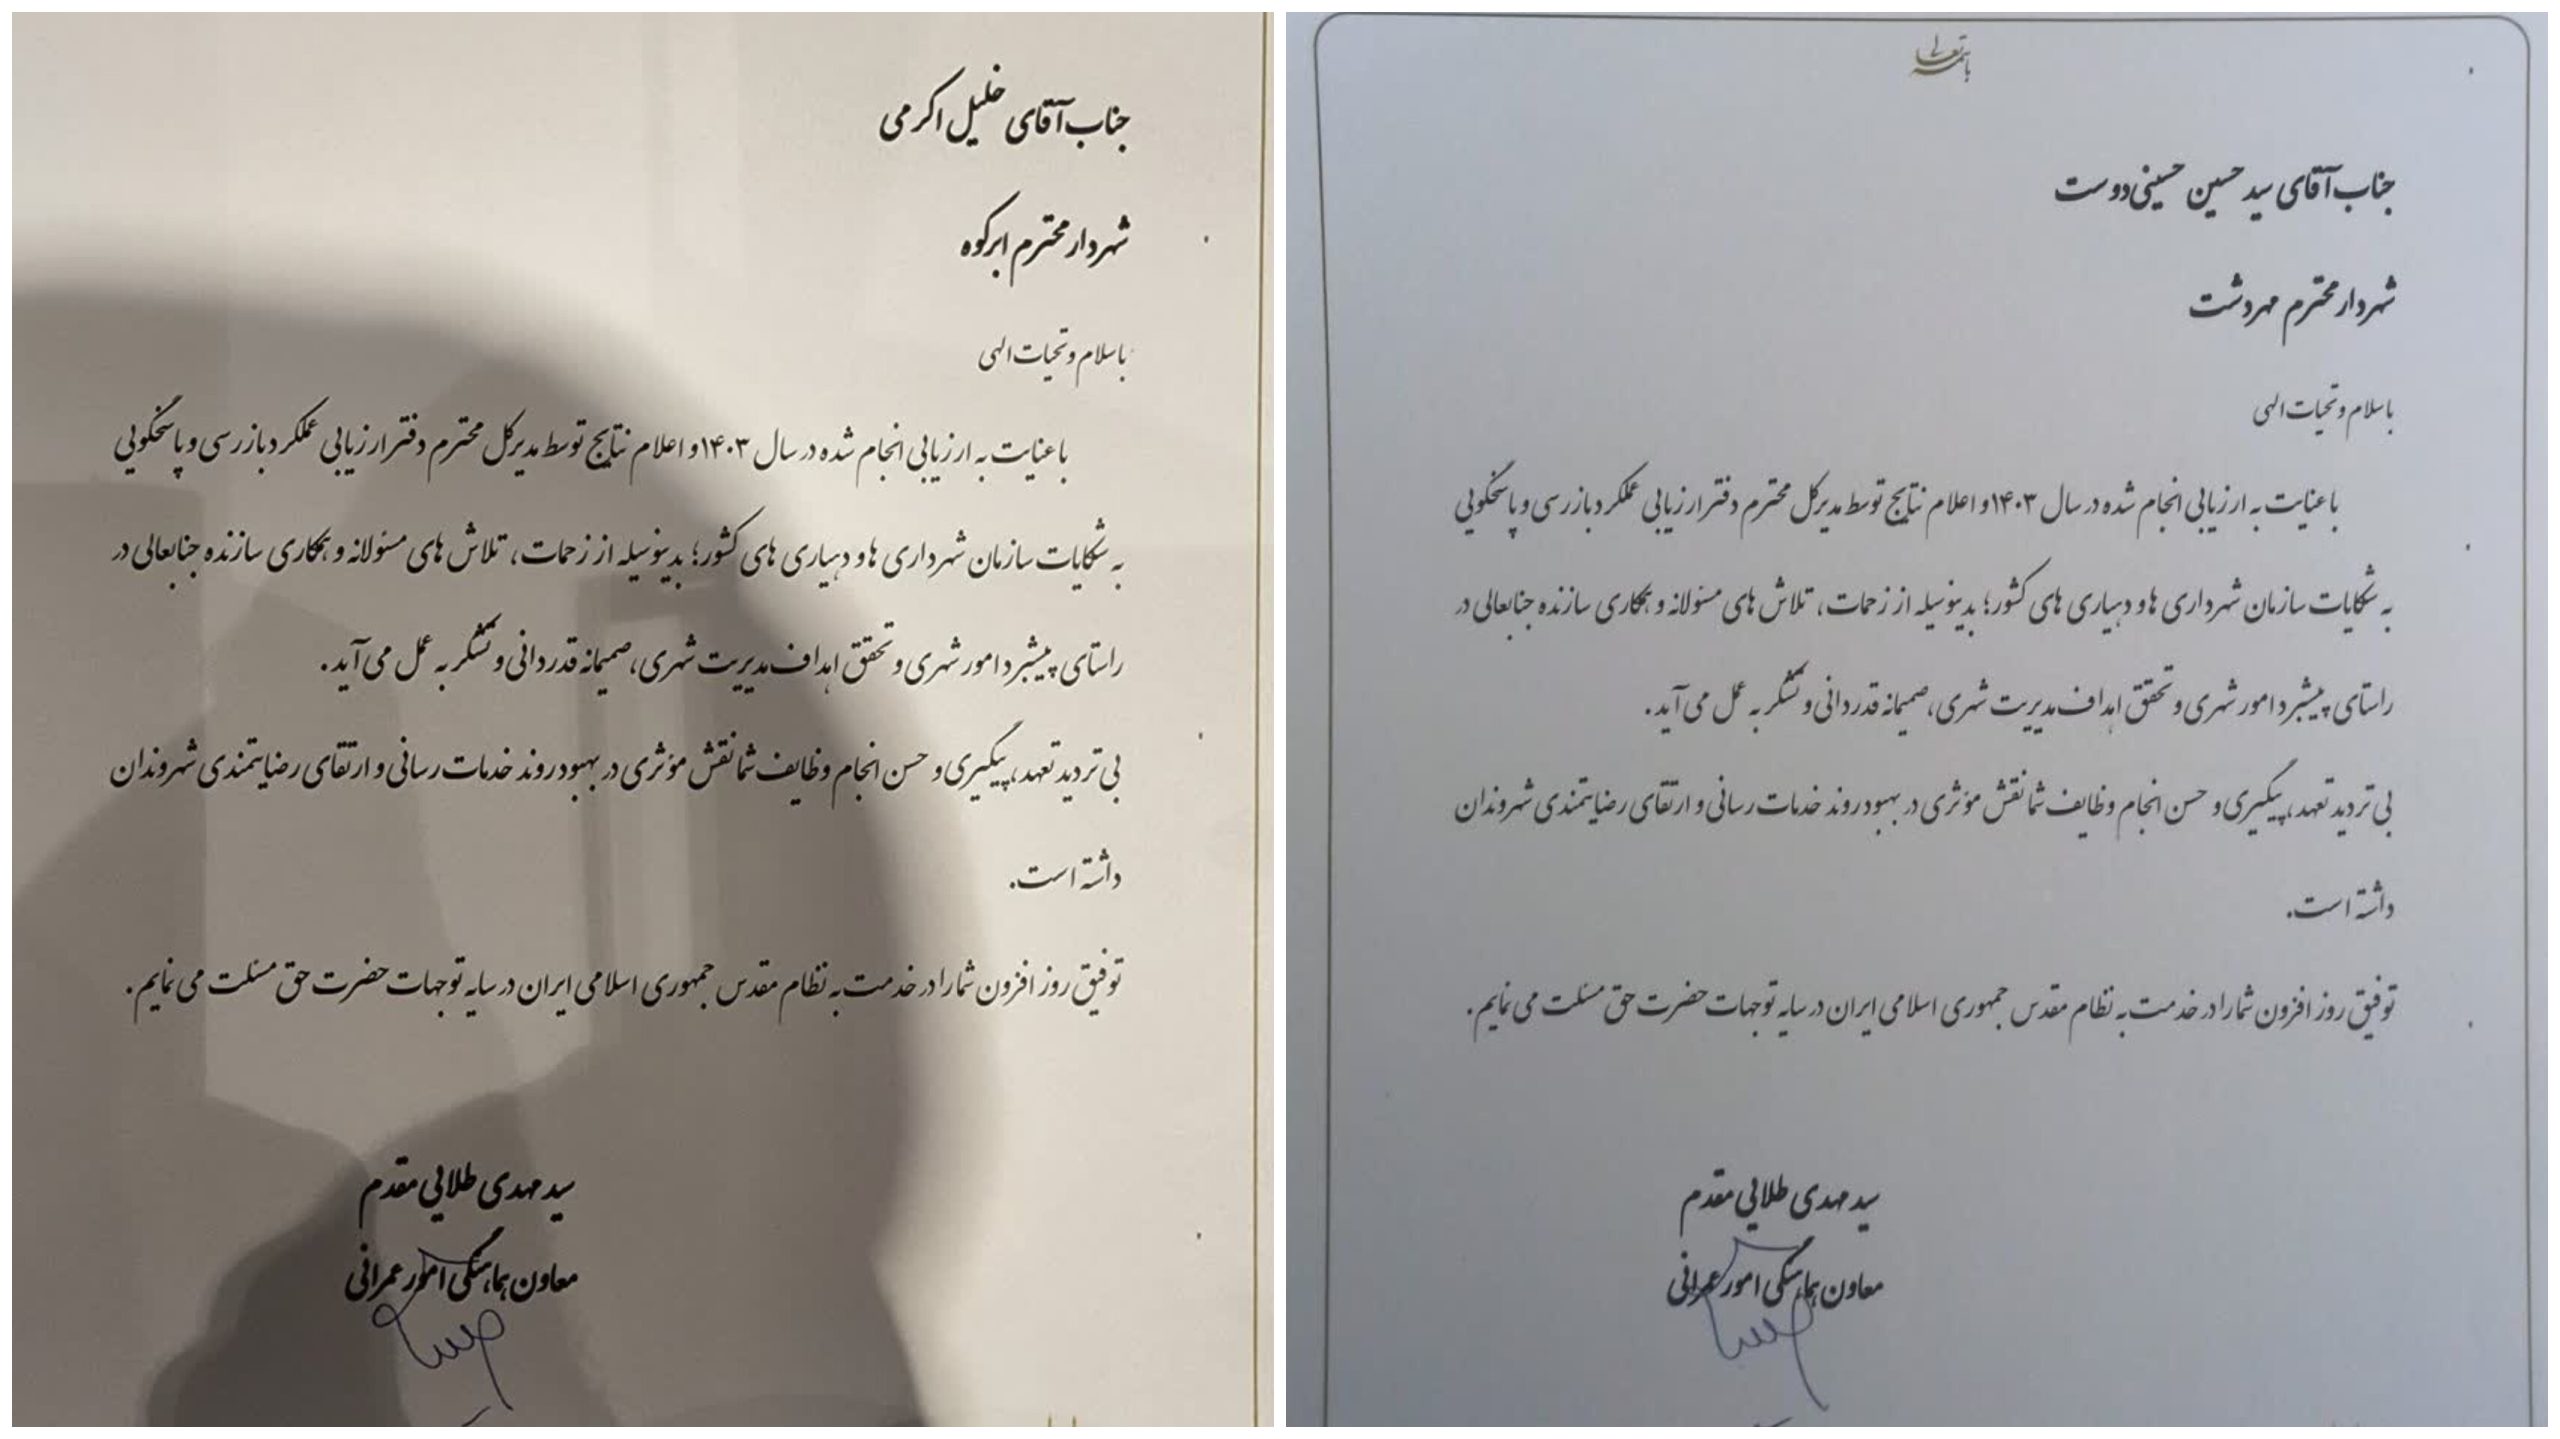 جناب آقای خلیل اکرمی
شهردار محترم ابرکوه
با سلام و تحیات الهی
با عنایت به ارزیابی انجام شده در سال ۱۴۰۳ و اعلام نتایج توسط مدیرکل محترم دفتر ارزیابی عملکرد بازرسی و پاسخگویی
به شکایات سازمان شهرداری ها و دهیاری های کشور؛ بدینوسیله از زحمات، تلاش های مسئولانه و همکاری سازنده جنابعالی در
راستای پیشبرد امور شهری و تحقق اهداف مدیریت شهری، صمیمانه قدردانی و تشکر به عمل می آید.
بی تردید تعهد، پیگیری و حسن انجام وظایف شما نقش مؤثری در بهبود روند خدمات رسانی و ارتقای رضایتمندی شهروندان
داشته است.
توفیق روز افزون شما را در خدمت به نظام مقدس جمهوری اسلامی ایران در سایه توجهات حضرت حق مسئلت می نمایم.
سید مهدی طلایی مقدم
معاون هماهنگی امور عمرانی
باسمه تعالی
جناب آقای سید حسین حسینی دوست
شهردار محترم مهردشت
با سلام و تحیات الهی
با عنایت به ارزیابی انجام شده در سال ۱۴۰۳ و اعلام نتایج توسط مدیرکل محترم دفتر ارزیابی عملکرد بازرسی و پاسخگویی
به شکایات سازمان شهرداری ها و دهیاری های کشور؛ بدینوسیله از زحمات، تلاش های مسئولانه و همکاری سازنده جنابعالی در
راستای پیشبرد امور شهری و تحقق اهداف مدیریت شهری، صمیمانه قدردانی و تشکر به عمل می آید.
بی تردید تعهد، پیگیری و حسن انجام وظایف شما نقش مؤثری در بهبود روند خدمات رسانی و ارتقای رضایتمندی شهروندان
داشته است.
توفیق روز افزون شما را در خدمت به نظام مقدس جمهوری اسلامی ایران در سایه توجهات حضرت حق مسئلت می نمایم.
سید مهدی طلایی مقدم
معاون هماهنگی امور عمرانی